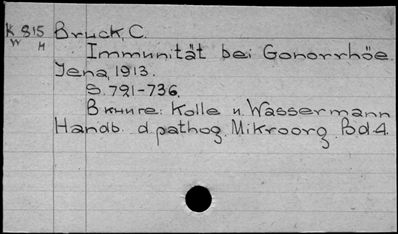 K 815 Bruck, C.
W H
Immunität bei Gonorrhöe.
Jena, 1913.
S. 721-736.
В книге: Kolle u. Wassermann
Handb. d. pathog. Mikroorg. Bd. 4.